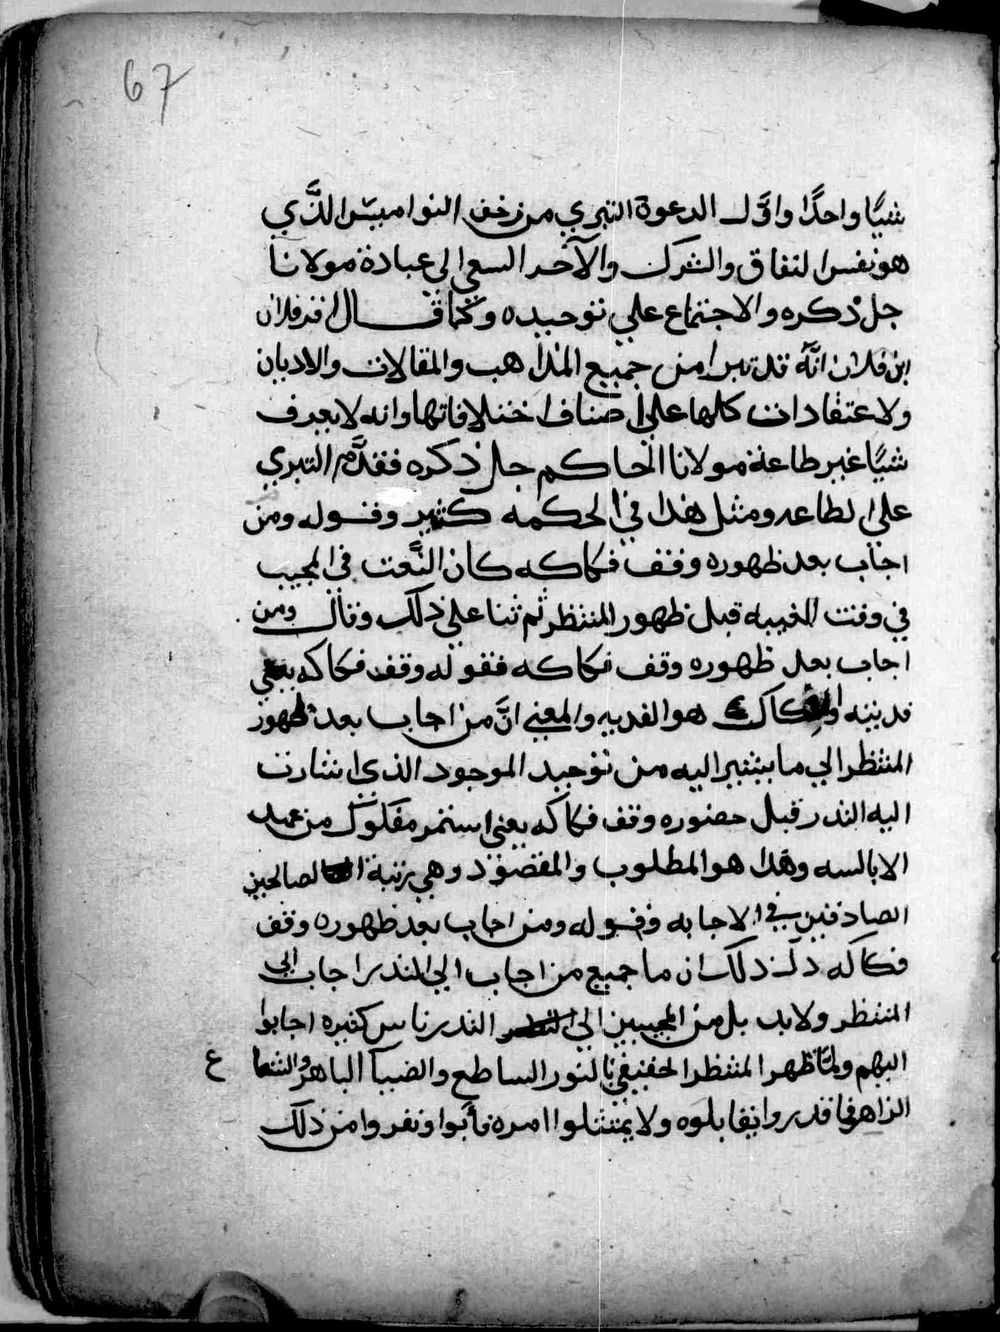 67
شيًا واحدًا واوَّل الدعوة التبري من زخرف النواميس الذَّي
هو نفس النفاق والشرك والآخر السعي الى عبادة مولانا
جل ذكره والاجتماع علي توحيده وكما قال اقر فلان
ابن فلان انَّه قد تبرا من جميع المذاهب والمقالات والاديان
ولاعتقادات كلها على اصناف اختلافاتها وانه لا يعرف
شيًا غير طاعة مولانا الحاكم جل ذكره فقدَّم التبري
على الطاعه ومثل هذا في الحكمه كثير وقوله ومن
اجاب بعد ظهوره وقف فكاكه كان النَّعت في المجيب
في وقت الغيبه قبل ظهور المنتظر ثم ثنا على ذلك وقال ومن
اجاب بعد ظهوره وقف فكاكه فقوله وقف فكاكه يعني
فديته والفكاك هو الفديه والمعني انَّ من اجاب بعد ظهور
المنتظر الي ما يشير اليه من توحيد الموجود الذى اشارت
اليه النذر قبل حضوره وقف فكاكه يعنى استمر مفكوك من عهد
الابالسه وهذا هو المطلوب والمقصود وهي رتبة الصالحين
الصادقين في الاجابه وقوله ومن اجاب بعد ظهوره وقف
فكاكه دل ذلك ان ما جميع من اجاب الي النذر اجاب الي
المنتظر ولابد بل من المجيبين الي النذر ناس كثيره اجابوا
اليهم ولمَّا ظهر المنتظر الحقيقي بالنور الساطع والضيا الباهر والشعاع
الزاهر فما قدروا يقابلوه ولا يمتثلوا امره فأبوا ونفروا من ذلك